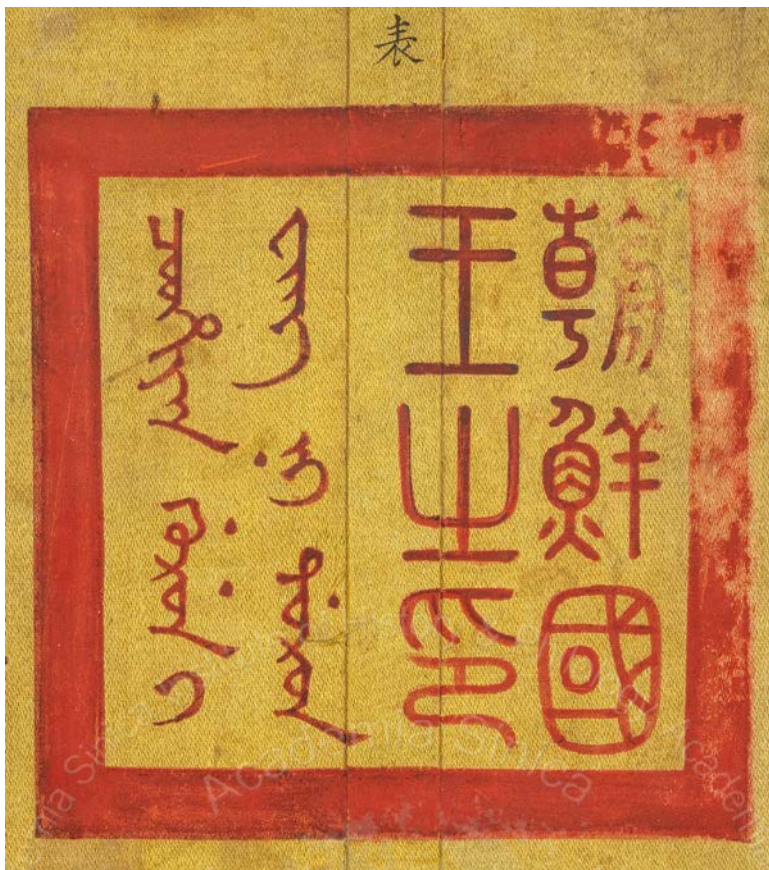 表
朝鮮國
王之印
ᠴᠣᠣᡥᡳᠶᠠᠨ ᡤᡠᡵᡠᠨ ᡳ
ᠸᠠᠩ ᠨᡳ ᡩᠣᡵᠣᠨ
Academia Sinica